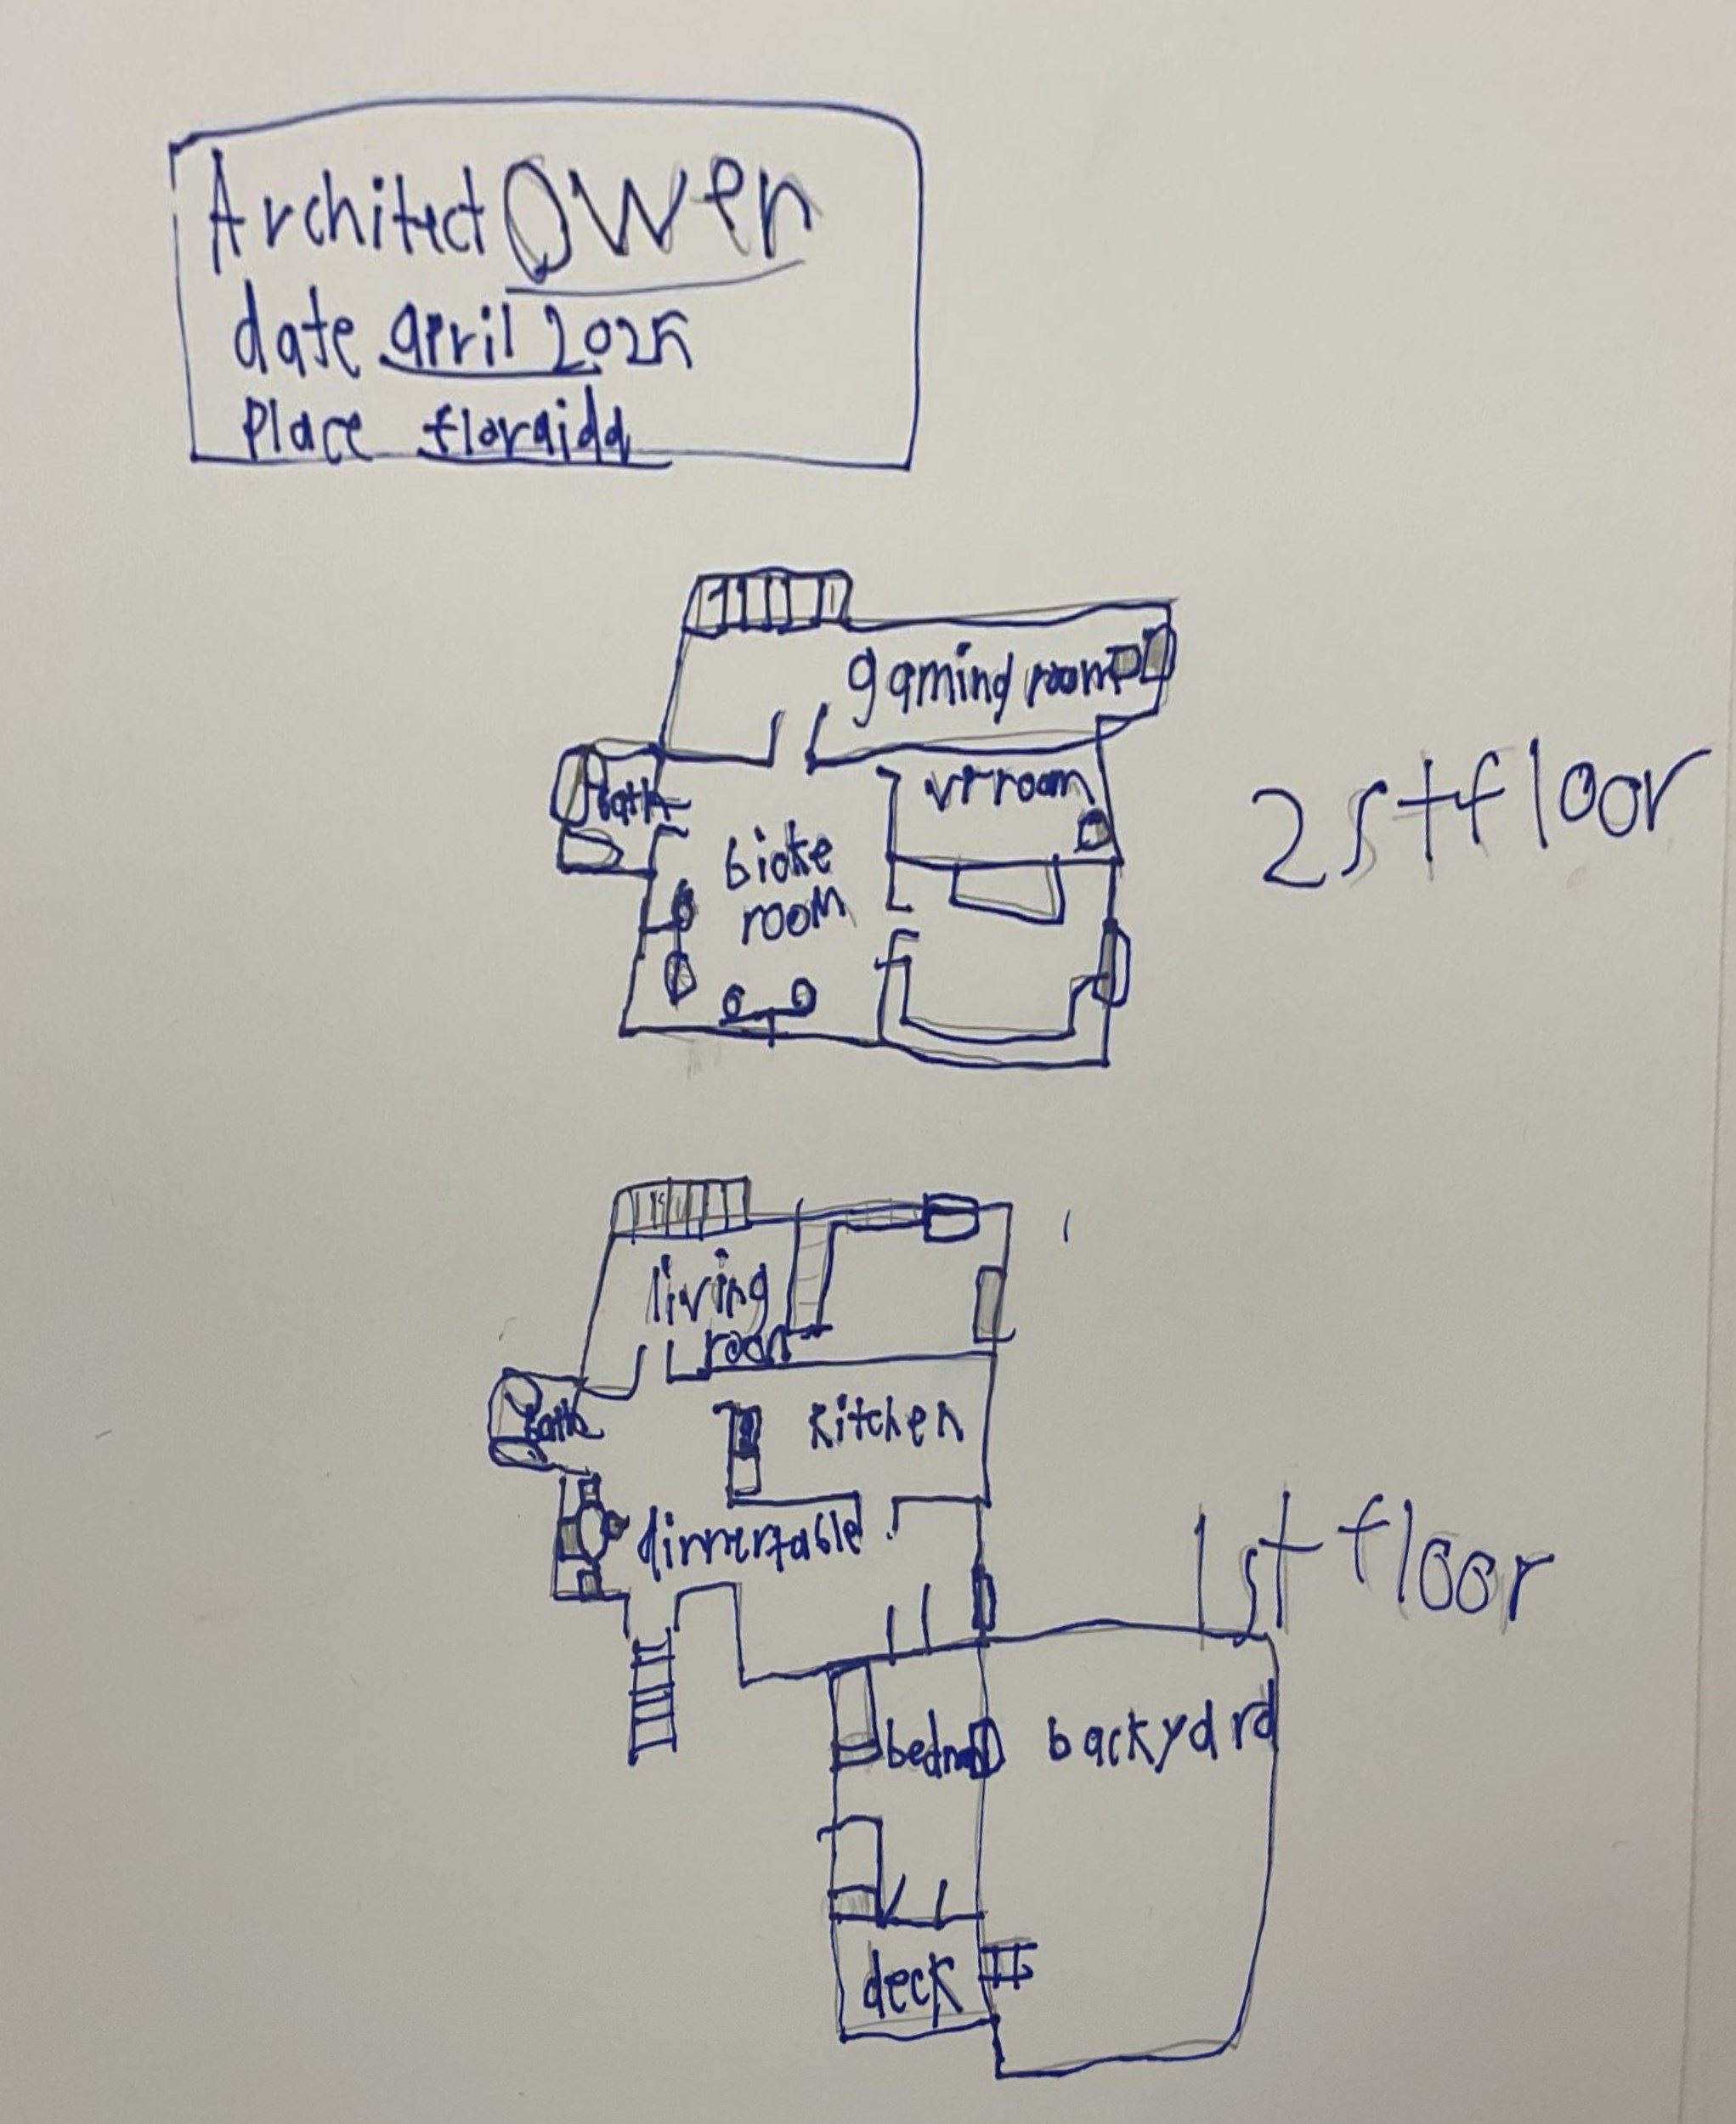 Architect Owen
date april 2025
Place floraida
gaming room
bath
vr room
bioke
room
2st floor
living
room
bath
kitchen
dinnertable
1st floor
backyard
deck